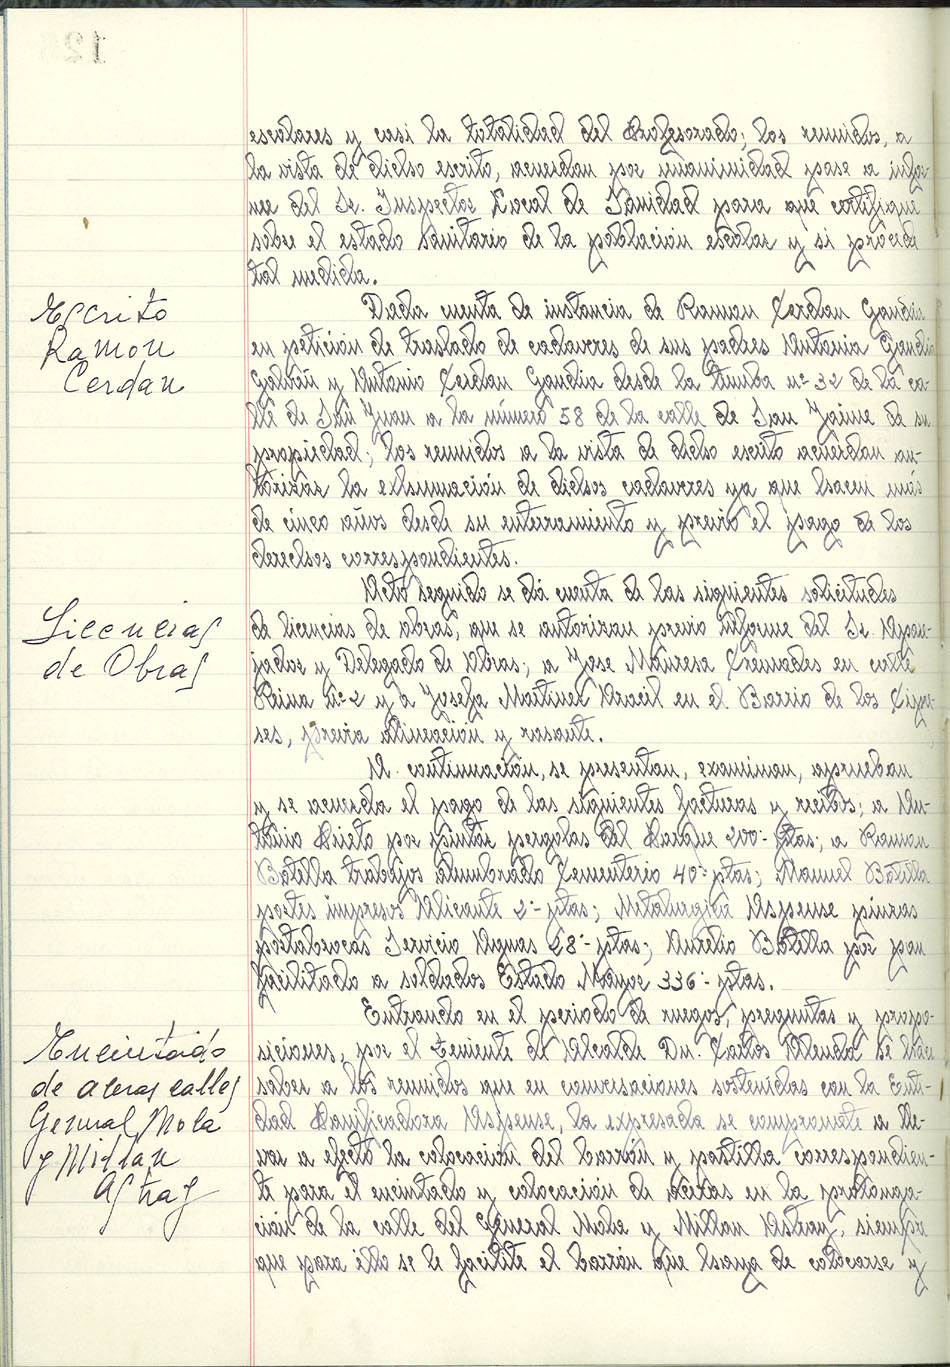 escolares y casi la totalidad del Profesorado; los reunidos, a
la vista de dicho escrito, acuerdan por unanimidad pase a infor-
me del Sr. Inspector Local de Sanidad para que certifique
sobre el estado sanitario de la población escolar y si procede
tal medida.
Escrito
Ramon
Cerdan
Dada cuenta de instancia de Ramon Cerdan Gandia
en petición de traslado de cadaveres de sus padres Antonia Gandia
Galván y Antonio Cerdan Gandia desde la tumba nº 32 de la ca-
lle de San Juan a la número 58 de la calle de San Jaime de su
propiedad; los reunidos a la vista de dicho escrito acuerdan au-
torizar la exhumación de dichos cadaveres ya que hacen más
de cinco años desde su enterramiento y previo el pago de los
derechos correspondientes.
Licencias
de Obras
Acto seguido se dá cuenta de las siguientes solicitudes
de licencias de obras, que se autorizan previo informe del Sr. Apare-
jador y Delegado de Obras; a Jose Mauresa Cremades en calle
Reina nº 2 y a Josefa Martinez Aracil en el Barrio de los Cipre-
ses, previa alineación y rasante.
A continuación, se presentan, examinan, aprueban
y se acuerda el pago de las siguientes facturas y recibos; a An-
tonio Prieto por pintar pergolas del Parque 200'- ptas; a Ramon
Botella trabajos alumbrado Cementerio 40'- ptas; Manuel Botella
portes impresos Alicante 2'- ptas; Metalurgica Aspense pinzas
portabrocas Servicio Aguas 28'- ptas; Aurelio Botella por pan
facilitado a soldados Estado Mayor 336'- ptas.
Encintado
de aceras calles
General Mola
y Millan
Astray
Entrando en el periodo de ruegos, preguntas y propo-
siciones, por el Teniente de Alcalde Dn. Carlos Alenda se hace
saber a los reunidos que en conversaciones sostenidas con la Enti-
dad Panificadora Aspense, la expresada se compromete a lle-
var a efecto la colocación del barrón y pastilla correspondien-
te para el encintado y colocación de aceras en la prolonga-
ción de la calle del General Mola y Millan Astray, siempre
que para ello se le facilite el barrón que haya de colocarse y